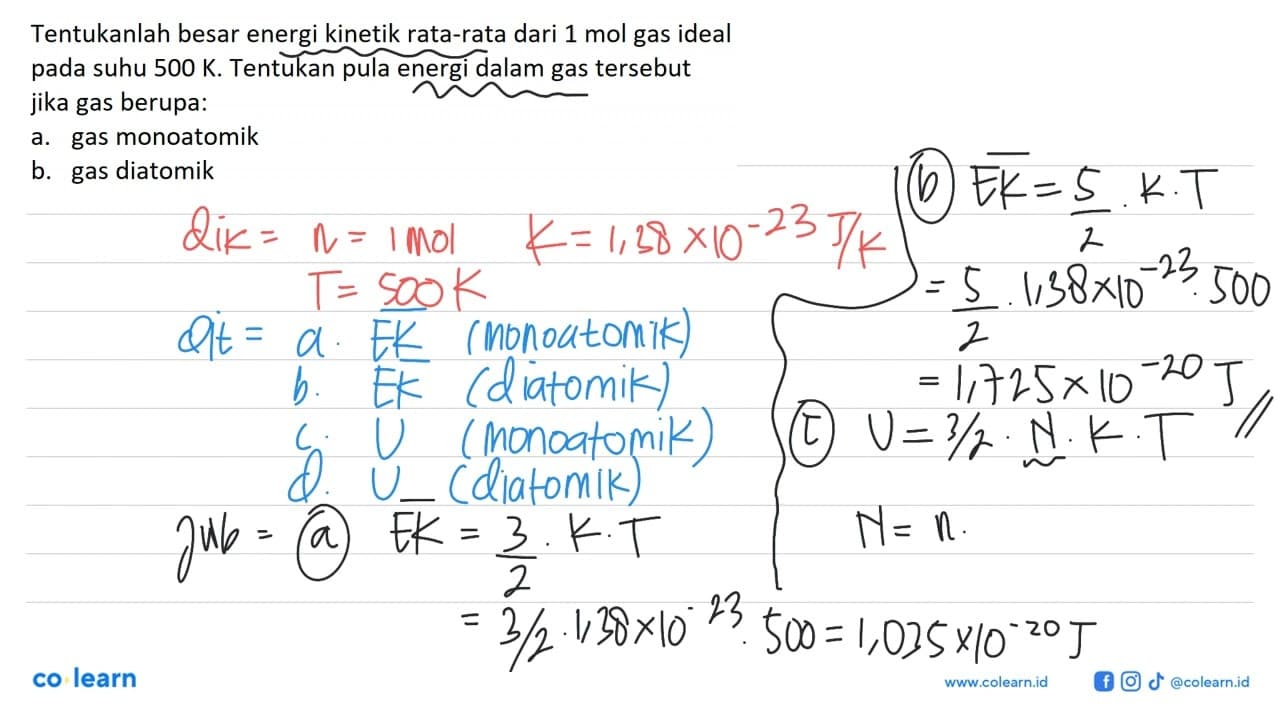 Tentukanlah besar energi kinetik rata-rata dari 1 mol gas ideal
pada suhu 500 K. Tentukan pula energi dalam gas tersebut
jika gas berupa:
a. gas monoatomik
b. gas diatomik
Dik = n = 1 mol K = 1,38 × 10⁻²³ J/K
T = 500 K
Dit = a. EK (monoatomik)
b. E̅K̅ (diatomik)
c. U (monoatomik)
d. U (diatomik)
Jwb = a E̅K̅ = 3/2 . K . T
= 3/2 . 1,38 × 10⁻²³ . 500 = 1,035 × 10⁻²⁰ J
b E̅K̅ = 5/2 . K . T
= 5/2 . 1,38 × 10⁻²³ . 500
= 1,725 × 10⁻²⁰ J //
c U = 3/2 . N . K . T
N = n .
co learn
www.colearn.id @colearn.id